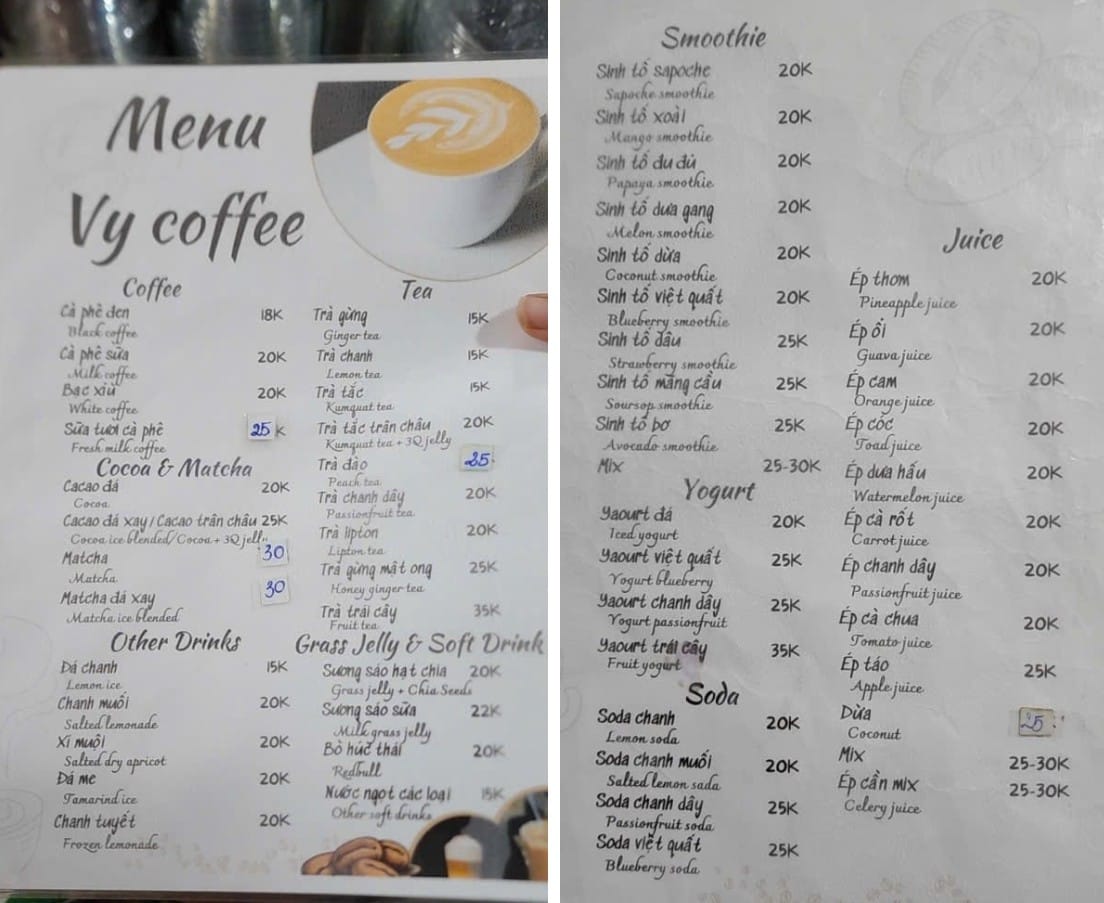 Menu
Vy coffee
Coffee
Cà phê đen 18K
Black coffee
Cà phê sữa 20K
Milk coffee
Bạc xỉu 20K
White coffee
Sữa tươi cà phê 25 K
Fresh milk coffee
Cocoa & Matcha
Cacao đá 20K
Cocoa
Cacao đá xay / Cacao trân châu 25K
Cocoa ice blended/Cocoa + 3Q jelly
Matcha 30
Matcha
Matcha đá xay 30
Matcha ice blended
Other Drinks
Đá chanh 15K
Lemon ice
Chanh muối 20K
Salted lemonade
Xí muội 20K
Salted dry apricot
Đá me 20K
Tamarind ice
Chanh tuyết 20K
Frozen lemonade
Tea
Trà gừng 15K
Ginger tea
Trà chanh 15K
Lemon tea
Trà tắc 15K
Kumquat tea
Trà tắc trân châu 20K
Kumquat tea + 3Q jelly
Trà đào 25
Peach tea
Trà chanh dây 20K
Passionfruit tea
Trà lipton 20K
Lipton tea
Trà gừng mật ong 25K
Honey ginger tea
Trà trái cây 35K
Fruit tea
Grass Jelly & Soft Drink
Sương sáo hạt chia 20K
Grass jelly + Chia Seeds
Sương sáo sữa 22K
Milk grass jelly
Bò húc thái 20K
Redbull
Nước ngọt các loại 15K
Other soft drinks
Smoothie
Sinh tố sapoche 20K
Sapoche smoothie
Sinh tố xoài 20K
Mango smoothie
Sinh tố đu đủ 20K
Papaya smoothie
Sinh tố dưa gang 20K
Melon smoothie
Sinh tố dừa 20K
Coconut smoothie
Sinh tố việt quất 20K
Blueberry smoothie
Sinh tố dâu 25K
Strawberry smoothie
Sinh tố mãng cầu 25K
Soursop smoothie
Sinh tố bơ 25K
Avocado smoothie
Mix 25-30K
Yogurt
Yaourt đá 20K
Iced yogurt
Yaourt việt quất 25K
Yogurt blueberry
Yaourt chanh dây 25K
Yogurt passionfruit
Yaourt trái cây 35K
Fruit yogurt
Soda
Soda chanh 20K
Lemon soda
Soda chanh muối 20K
Salted lemon sada
Soda chanh dây 25K
Passionfruit soda
Soda việt quất 25K
Blueberry soda
Juice
Ép thơm 20K
Pineapple juice
Ép ổi 20K
Guava juice
Ép cam 20K
Orange juice
Ép cóc 20K
Toad juice
Ép dưa hấu 20K
Watermelon juice
Ép cà rốt 20K
Carrot juice
Ép chanh dây 20K
Passionfruit juice
Ép cà chua 20K
Tomato juice
Ép táo 25K
Apple juice
Dừa 25
Coconut
Mix 25-30K
Ép cần mix 25-30K
Celery juice